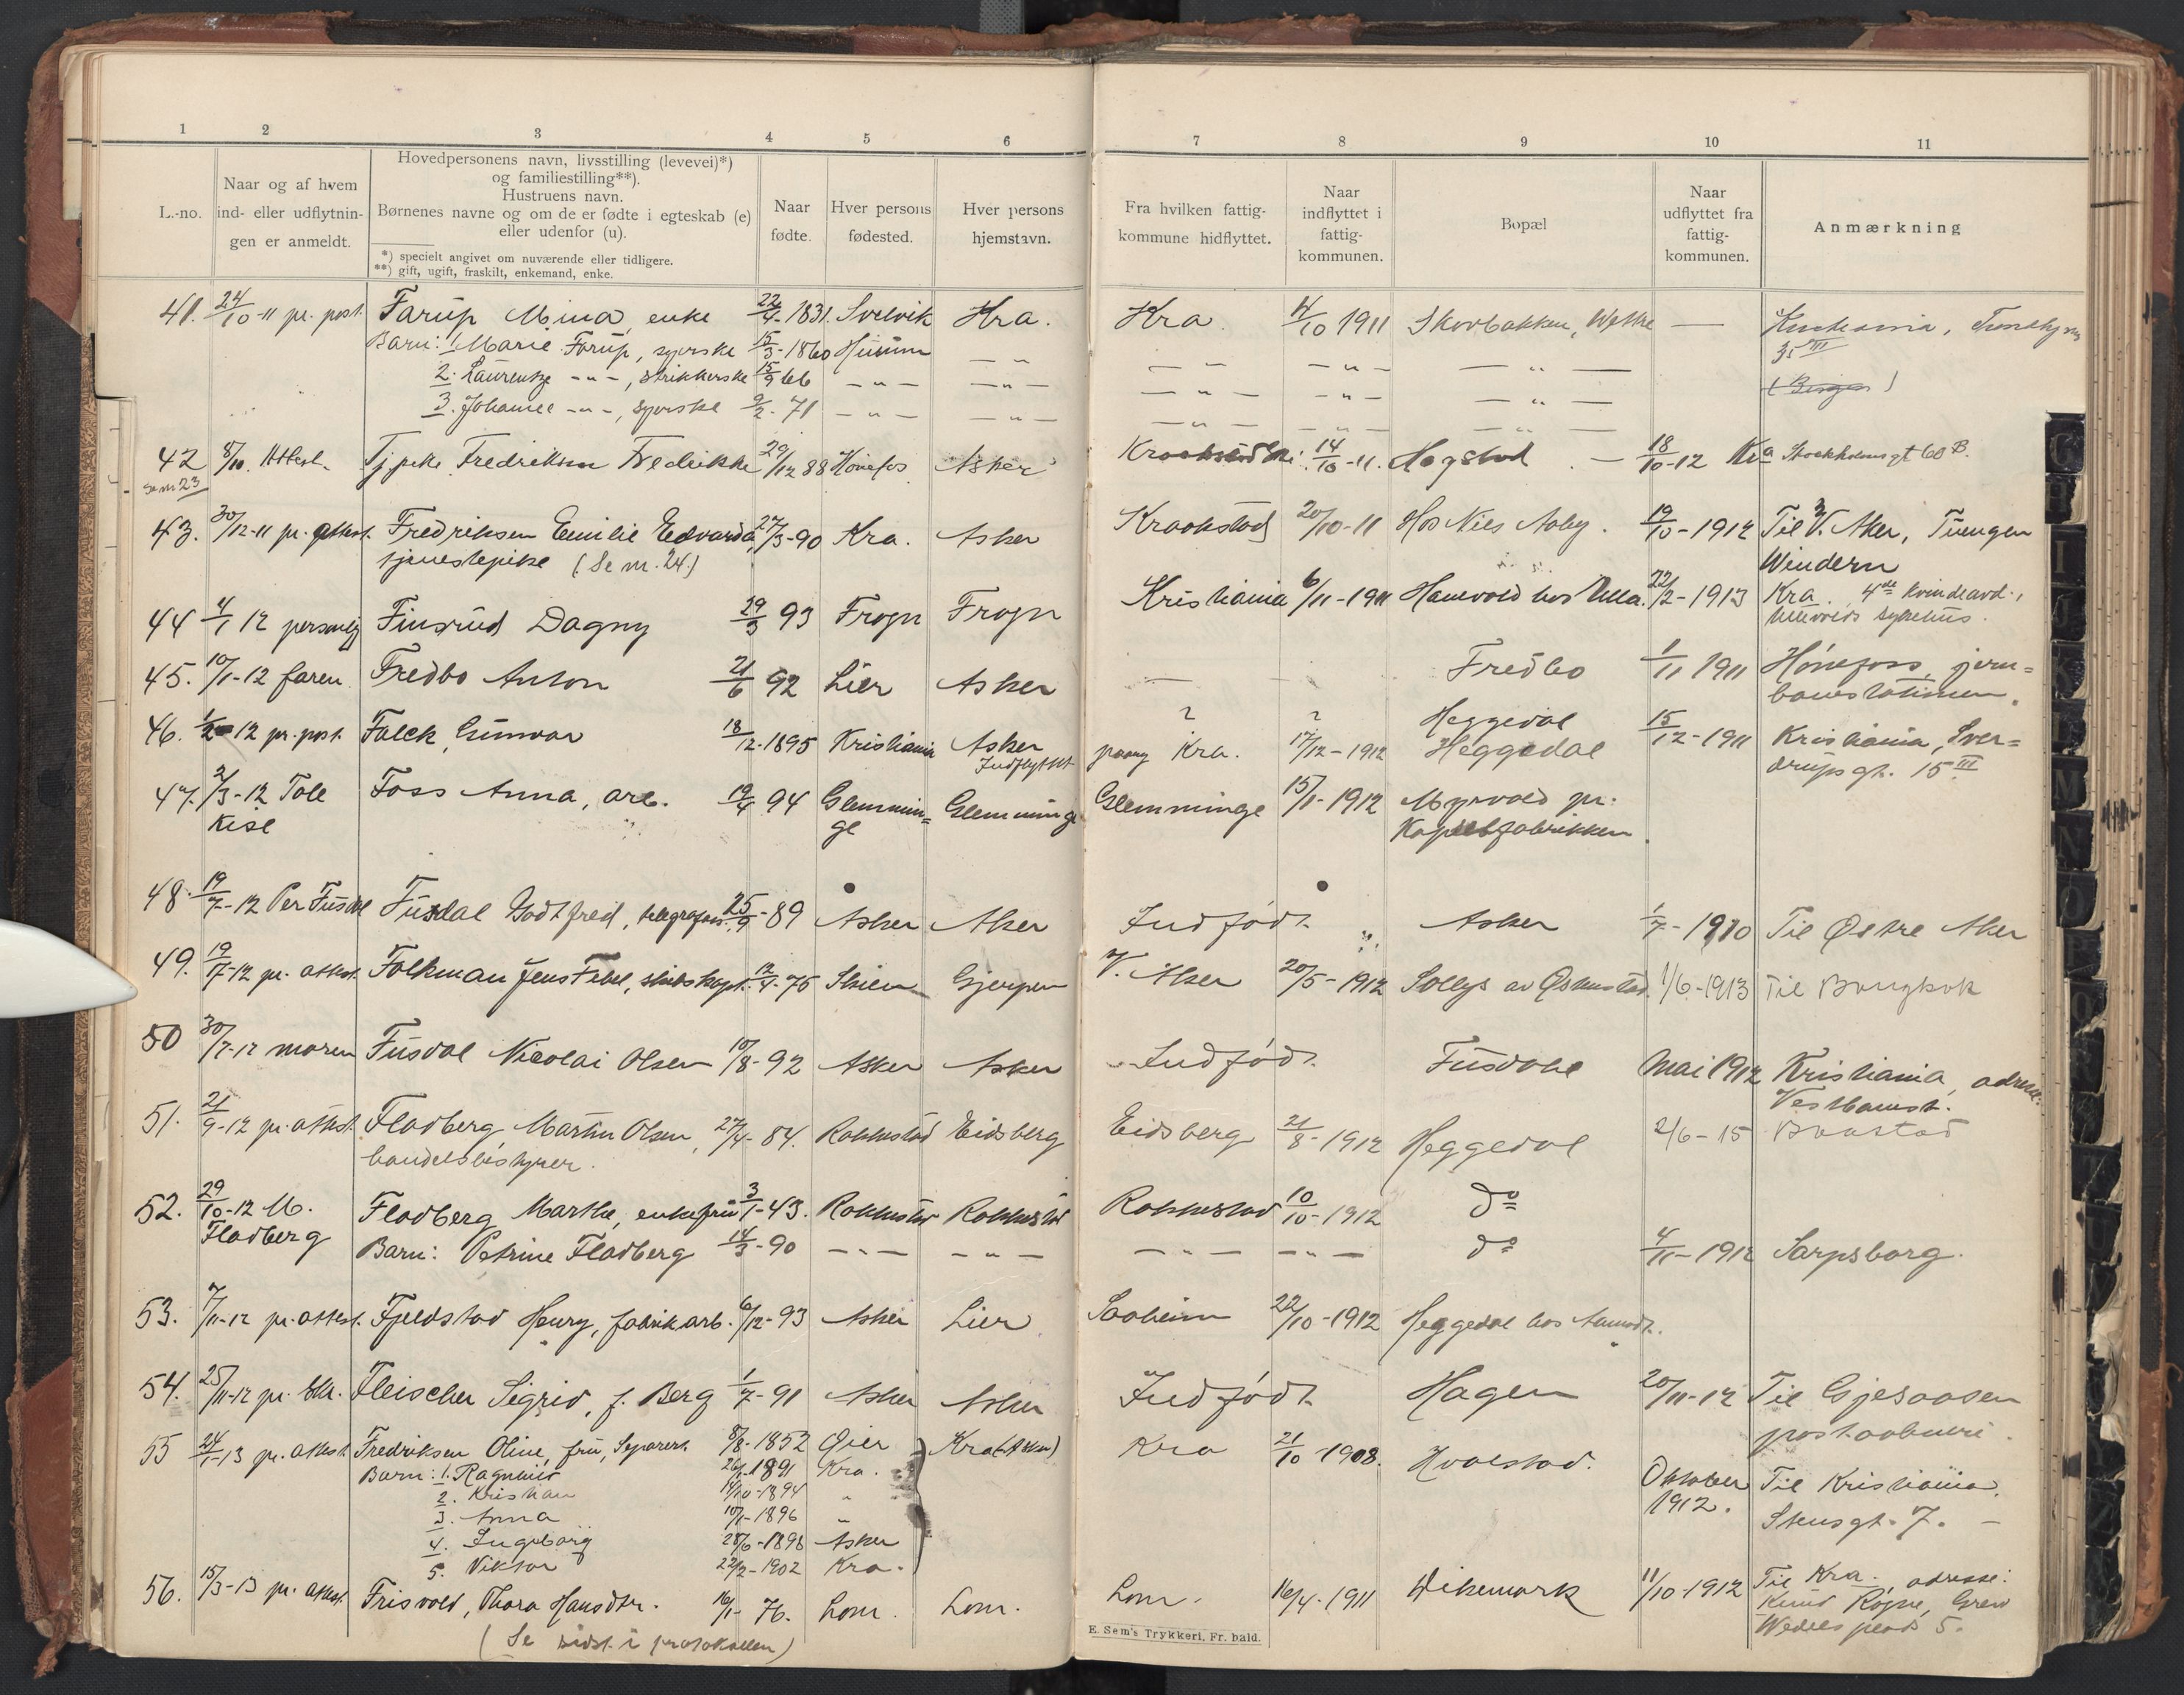 1 2 3 4 5 6 7 8 9 10 11
L.-no.
Naar og af hvem
ind- eller udflytnin-
gen er anmeldt.
Hovedpersonens navn, livsstilling (levevei)*)
og familiestilling**).
Hustruens navn.
Børnenes navne og om de er fødte i egteskab (e)
eller udenfor (u).
*) specielt angivet om nuværende eller tidligere.
**) gift, ugift, fraskilt, enkemand, enke.
Naar
fødte.
Hver persons
fødested.
Hver persons
hjemstavn.
Fra hvilken fattig-
kommune hidflyttet.
Naar
indflyttet i
fattig-
kommunen.
Bopæl
Naar
udflyttet fra
fattig-
kommunen.
Anmærkning
41. 24/10-11 pr. post. Farup Mina, enke 22/4-1831. Svelvik Kra. Kra. 14/10 1911 Skovbakken, —
35 III
Barn: 1. Marie Farup, syerske 15/3-1860 Hurum — " — — " — — " — — " —
2. Laurentze — " —, strikkerske 15/9 66 — " — — " — — " — — " — — " —
3. Johanne — " —, syerske 9/2-71 — " — — " — — " — — " — — " —
42 8/10. Attest. Fredriksen Fredrikke 29/12 88 Hønefos Asker 14/10-11. Hogstad — 18/10-12 Kra Stockholmsgt 60 B.
Se nr. 23
43. 30/12-11 pr. attest. Fredriksen Emilie Edvarda, 27/3-90 Kra. Asker Kraakstad 20/10-11 Hos Nils Aaby. 19/10-1912 Til V. Aker, Tuengen
tjenestepike (Se nr. 24.) Windern
44 4/1 12 personlig Finsrud Dagny 29/3 93 Frogn Frogn Kristiania 6/11-1911 Hanevold hos Ulla. 22/2-1913 Kra. 4de kvindeavd.,
Ullevolds sykehus.
45. 10/1-12 faren Fredbo Anton 21/6 92 Lier Asker — Fredbo 1/11 1911 Hønefoss jern=
banestationen.
46. 1/2-12 pr. post. Falck, Gunvor 18/12-1895 Kristiania Asker ? ? Heggedal 15/12-1911 Kristiania, Sver=
Indflyttet paany Kra. 17/12-1912 Heggedal drupsgt. 15 III
47. 2/3-12 Tole Foss Anna, arb. 19/4 94 Glemmin= Glemminge Glemminge 15/1-1912 Myrvold pr.
Kise ge Kapselfabrikken.
48. 19/7-12 Per Fusdal Fusdal Godtfred, telegrafass. 25/9-89 Asker Aker Indfødt. Asker 1/7-1910 Til Østre Aker
49. 19/7-12 pr. attest. Folkman Jens Febel, skibskapt. 12/4-75 Skien Gjerpen V. Aker 20/5-1912 Sollys av Øshustad. 1/6-1913 Til Bangkok
50 30/7-12 moren Fusdal Nicolai Olsen 10/8-92 Asker Asker Indfødt. Fusdal Mai 1912 Kristiania, adresse:
Vestbanest.
51. 21/9-12 pr. attest. Fladberg, Martin Olsen, 27/4-84. Rakkestad Eidsberg Eidsberg 21/8-1912 Heggedal 2/6-15 Baastad
handelsbestyrer.
52. 29/10-12 M. Fladberg Marthe, enkefru 3/1-43. Rakkestad Rakkestad Rakkestad 10/10-1912 do
Fladberg Barn: Petrine Fladberg 14/3-90 — " — — " — — " — — " — do 4/11-1912 Sarpsborg.
53. 7/11-12 pr. attest. Fjeldstad Henry, fabrikarb. 6/12-93 Asker Lier Saaheim 22/10-1912 Heggedal hos Aamodt.
54. 25/11-12 pr. Fleischer Sigrid, f. Berg 1/7-91 Asker Asker Indfødt. Hagen 20/11-12 Til Gjesaasen
postaabneri.
55 24/1-13 pr. attest. Fredriksen Oline, fru, Separert. 8/8-1852 Øier Kra (Asker) Kra 21/10-1908. Hvalstad. Oktober Til Kristiania
1912. Stensgt. 7. —
Barn: 1. Ragnhild 26/1-1891 Kra.
2. Kristian 14/10-1894 "
3. Anna 10/1-1896 "
4. Ingeborg 28/6-1898 Asker
5. Viktor 22/2-1902 Kra.
56. 15/3-13 pr. attest. Frisvold, Thora Hansdtr. 16/1-76. Lom. Lom. Lom. 16/4-1911 Dikemark 11/10-1912 Til Kra., adresse:
Knud Rogne, Grev
(Se sidst i protokollen) Wedels plads 5.
E. Sem's Trykkeri, Fr. hald.